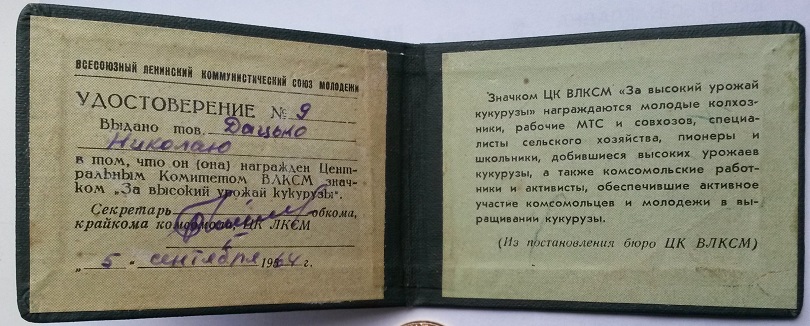 ВСЕСОЮЗНЫЙ ЛЕНИНСКИЙ КОММУНИСТИЧЕСКИЙ СОЮЗ МОЛОДЕЖИ
УДОСТОВЕРЕНИЕ № 9
Выдано тов. Дацько
Николаю
в том, что он (она) награжден Цент-
ральным Комитетом ВЛКСМ знач-
ком „За высокий урожай кукурузы".
Секретарь обкома,
крайкома комсомола, ЦК ЛКСМ
„5 - сентября 1964 г.
Значком ЦК ВЛКСМ «За высокий урожай
кукурузы» награждаются молодые колхоз-
ники, рабочие МТС и совхозов, специа-
листы сельского хозяйства, пионеры и
школьники, добившиеся высоких урожаев
кукурузы, а также комсомольские работ-
ники и активисты, обеспечившие активное
участие комсомольцев и молодежи в вы-
ращивании кукурузы.
(Из постановления бюро ЦК ВЛКСМ)